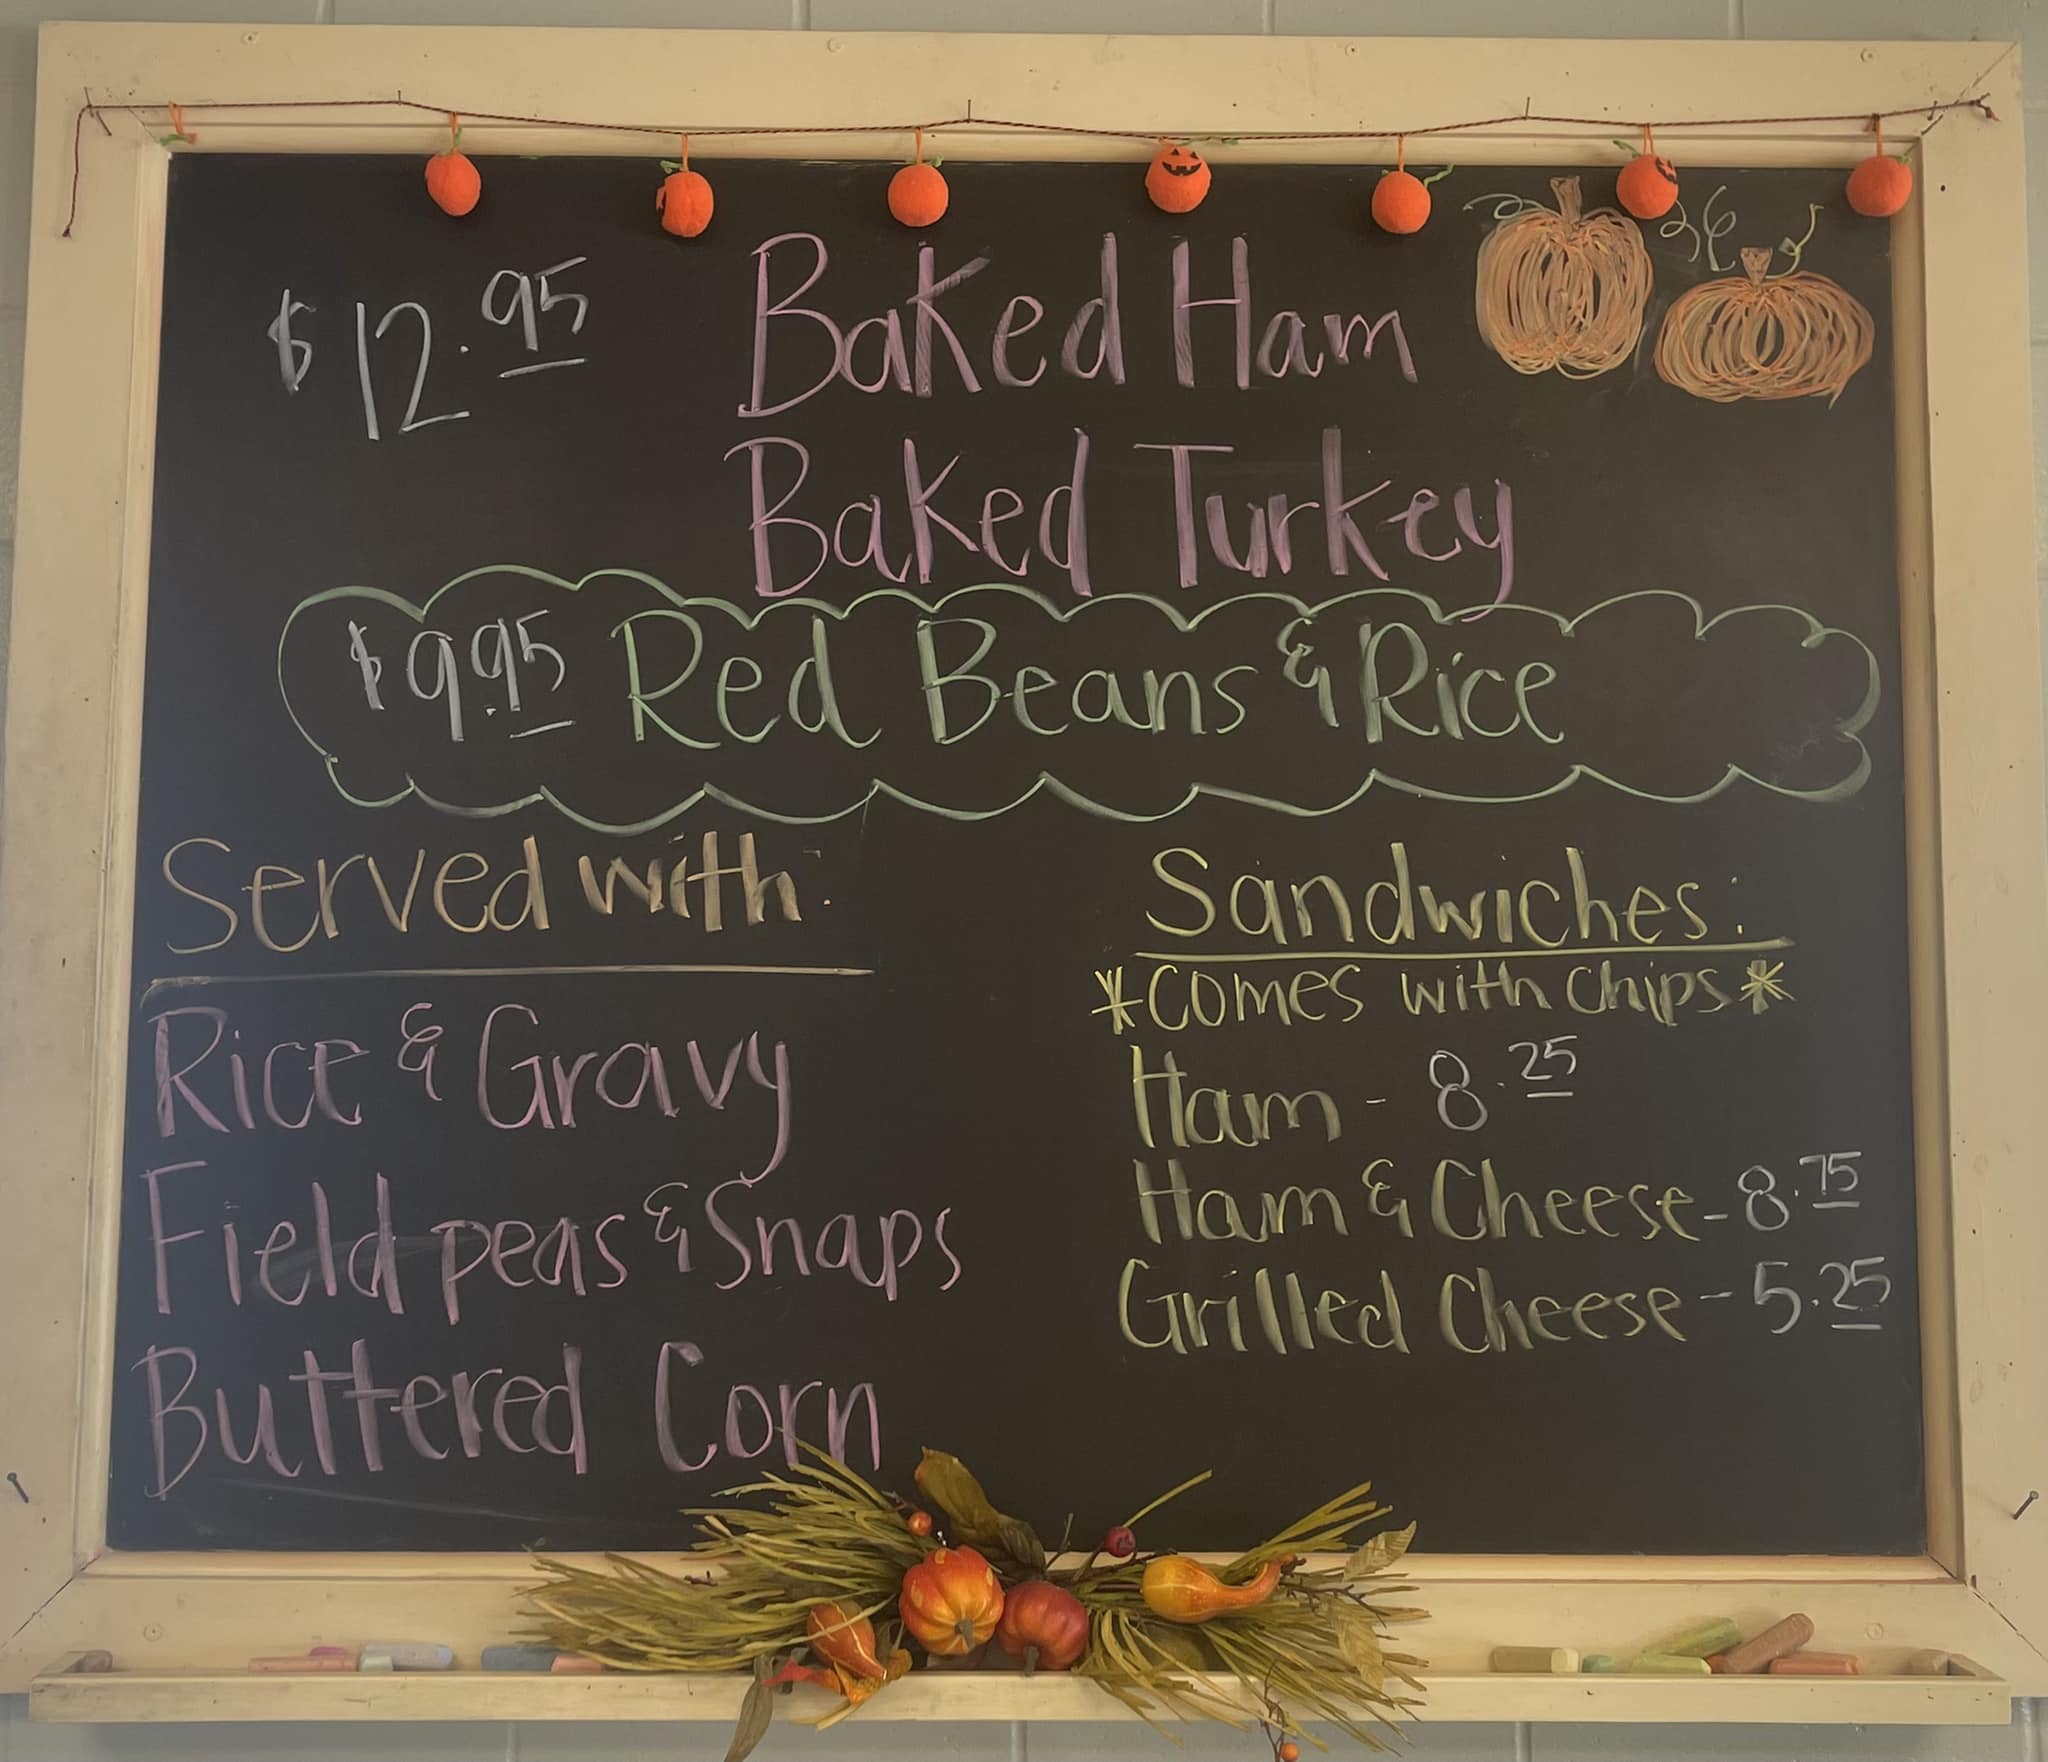 $12.95 Baked Ham
Baked Turkey
$9.95 Red Beans & Rice
Served with:
Rice & Gravy
Field peas & Snaps
Buttered Corn
Sandwiches:
*Comes with Chips*
Ham - 8.25
Ham & Cheese - 8.75
Grilled Cheese - 5.25